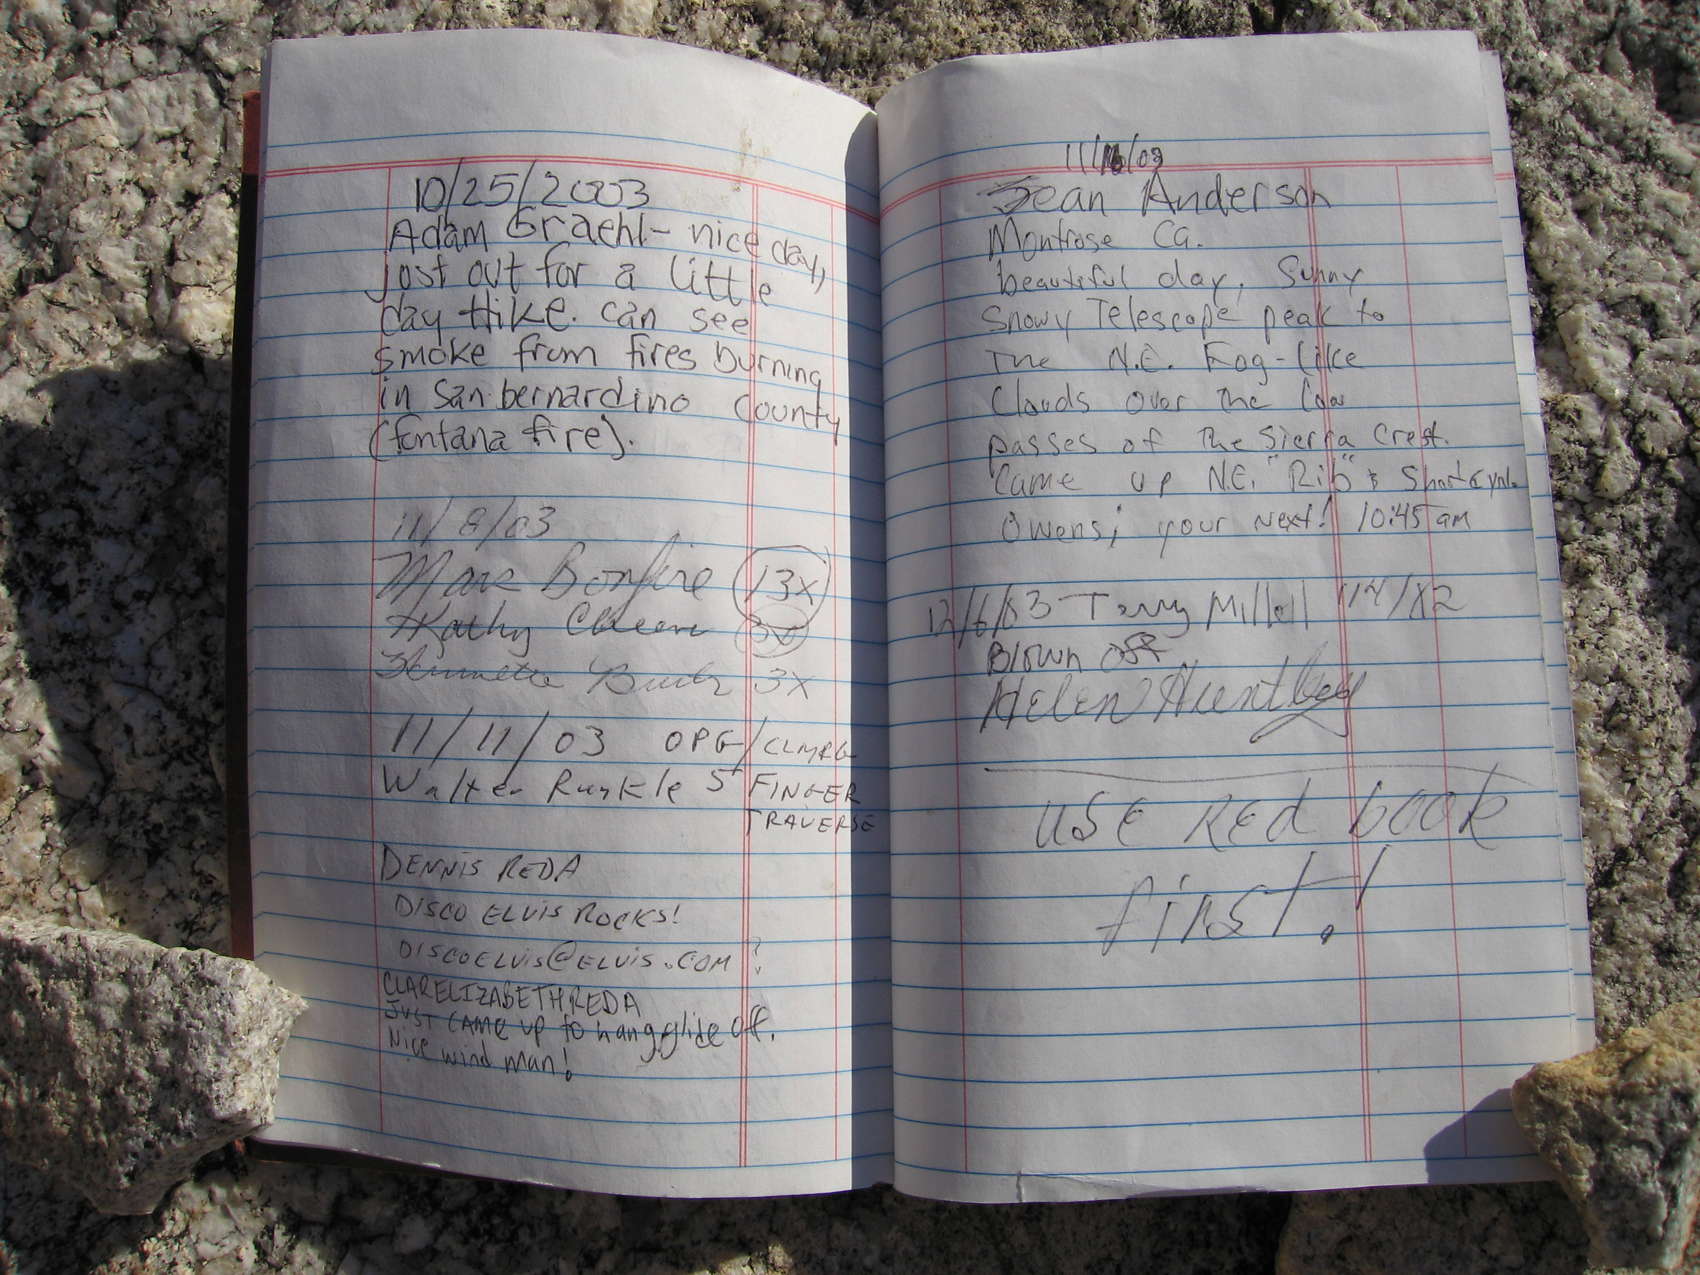 10/25/2003
Adam Graehl - nice day,
Jost out for a little
day Hike. can see
smoke from fires burning
in San bernardino county
(fontana fire).
11/8/03
Marc Bonfire 13x
Kathy 3x
3x
11/11/03 OPG/CLMRG
Walter Runkle 5 FINGER
TRAVERSE
DENNIS REDA
DISCO ELVIS ROCKS!
DISCOELVIS@ELVIS.COM ?
CLARELIZABETHREDA
JUST CAME UP to hangglide off.
Nice wind man!
11/16/03
Sean Anderson
Montrose Ca.
beautiful day, Sunny
Snowy Telescope peak to
The N.E. Fog-like
Clouds over the low
passes of the Sierra Crest.
Came up N.E. "Rib" & Short Cyn.
Owens; your next! 10:45 am
12/6/03 Terry
Blown off
Helen Huntley
USE RED book
first!